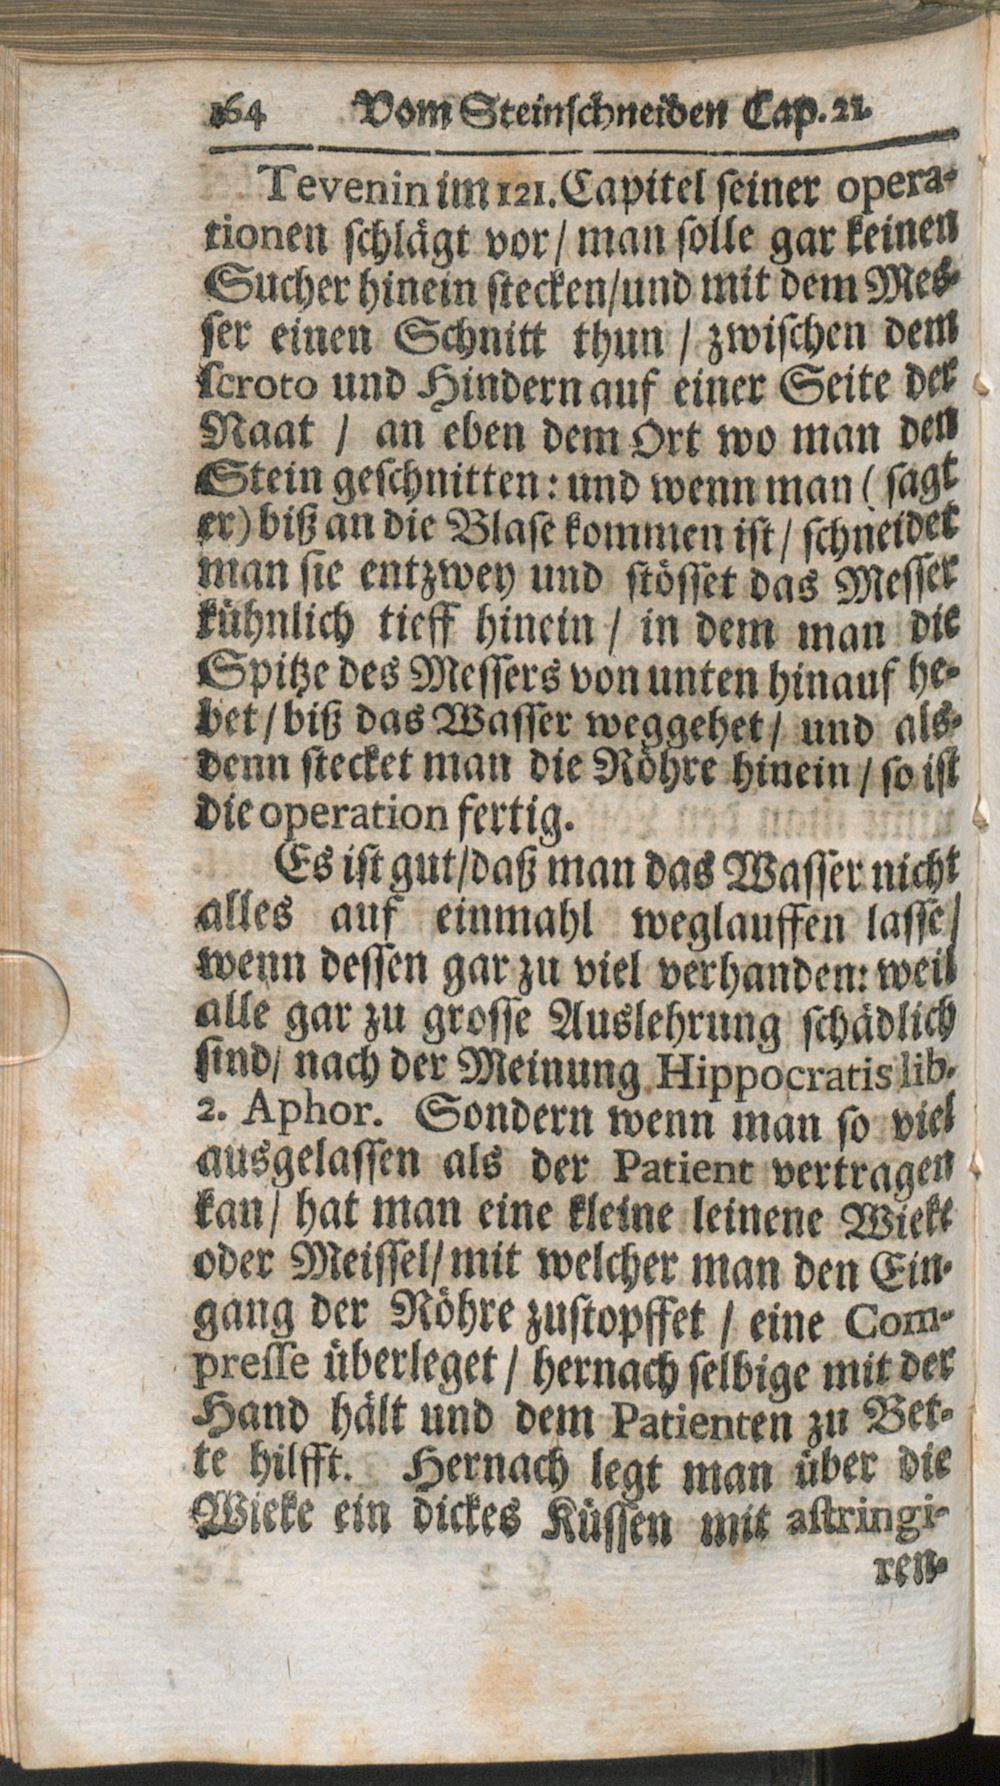 164 Vom Steinschneiden Cap. 21.
Tevenin im 121. Capitel seiner opera-
tionen schlägt vor / man solle gar keinen
Sucher hinein stecken / und mit dem Mes-
ser einen Schnitt thun / zwischen dem
scroto und Hindern auf einer Seite der
Naat / an eben dem Ort wo man den
Stein geschnitten: und wenn man (sagt
er) biß an die Blase kommen ist / schneidet
man sie entzwey und stösset das Messer
kühnlich tieff hinein / in dem man die
Spitze des Messers von unten hinauf he-
bet / biß das Wasser weggehet / und als-
denn stecket man die Röhre hinein / so ist
die operation fertig.
Es ist gut / daß man das Wasser nicht
alles auf einmahl weglauffen lasse /
wenn dessen gar zu viel verhanden: weil
alle gar zu grosse Auslehrung schädlich
sind / nach der Meinung Hippocratis lib.
2. Aphor. Sondern wenn man so viel
ausgelassen als der Patient vertragen
kan / hat man eine kleine leinene Wieke
oder Meissel / mit welcher man den Ein-
gang der Röhre zustopffet / eine Com-
presse überleget / hernach selbige mit der
Hand hält und dem Patienten zu Bet-
te hilfft. Hernach legt man über die
Wieke ein dickes Küssen mit astringi-
ren-